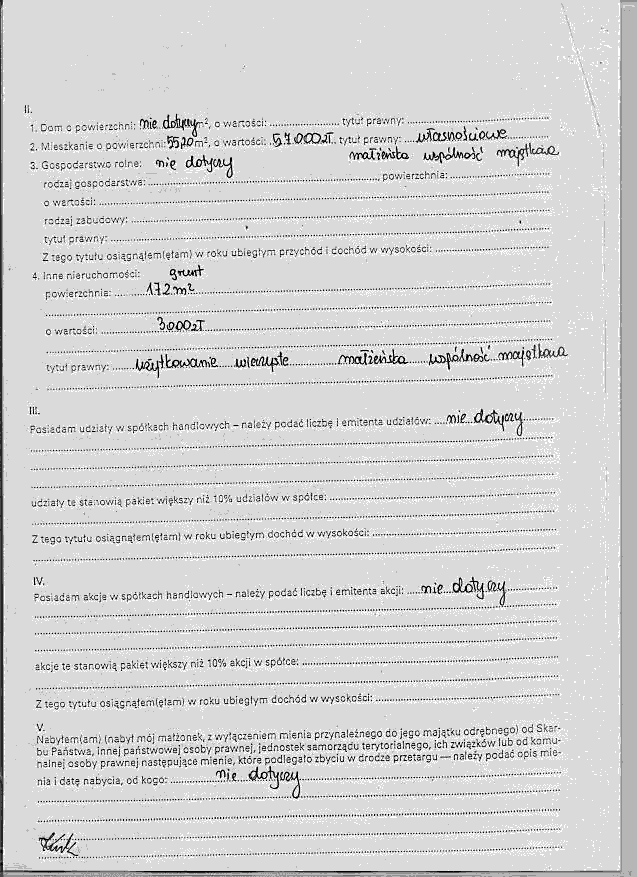 II.
1. Dom o powierzchni: nie dotyczy m², o wartości: ........ tytuł prawny: ........
2. Mieszkanie o powierzchni: 55,20 m², o wartości: 57.000 zł. tytuł prawny: własnościowe
małżeńska wspólność majątkowa
3. Gospodarstwo rolne: nie dotyczy
rodzaj gospodarstwa: ........, powierzchnia: ........
o wartości: ........
rodzaj zabudowy: ........
tytuł prawny: ........
Z tego tytułu osiągnąłem(ęłam) w roku ubiegłym przychód i dochód w wysokości: ........
4. Inne nieruchomości: grunt
powierzchnia: 172 m²
o wartości: 3000 zł
tytuł prawny: użytkowanie wieczyste małżeńska wspólność majątkowa
III.
Posiadam udziały w spółkach handlowych – należy podać liczbę i emitenta udziałów: nie dotyczy
udziały te stanowią pakiet większy niż 10% udziałów w spółce: ........
Z tego tytułu osiągnąłem(ęłam) w roku ubiegłym dochód w wysokości: ........
IV.
Posiadam akcje w spółkach handlowych – należy podać liczbę i emitenta akcji: nie dotyczy
akcje te stanowią pakiet większy niż 10% akcji w spółce: ........
Z tego tytułu osiągnąłem(ęłam) w roku ubiegłym dochód w wysokości: ........
V.
Nabyłem(am) (nabył mój małżonek, z wyłączeniem mienia przynależnego do jego majątku odrębnego) od Skar-
bu Państwa, innej państwowej osoby prawnej, jednostek samorządu terytorialnego, ich związków lub od komu-
nalnej osoby prawnej następujące mienie, które podlegało zbyciu w drodze przetargu — należy podać opis mie-
nia i datę nabycia, od kogo: nie dotyczy